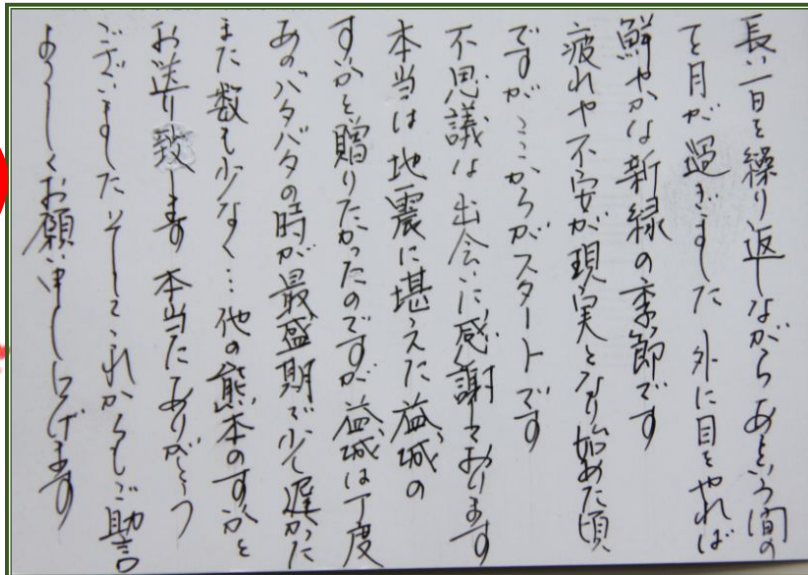 長い一日を繰り返しながら あという間の
てヶ月が過ぎました 外に目をやれば
鮮やかな新緑の季節です
疲れや不安が現実となり始めた頃
ですが ここからがスタートです
不思議な出会いに感謝しております
本当は地震に堪えた益城の
すいかを贈りたかったのですが 益城は丁度
あのバタバタの時が最盛期で少し遅かった
また数も少なく… 他の熊本のすいかを
お送り致します 本当にありがとう
ございました そしてこれからもご助言
よろしくお願い申し上げます